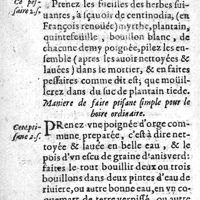 Ce pes-
saire 2.s.
Prenez les fueilles des herbes sui-
uantes, à sçauoir de centinodia, (en
François renouée) myrthe, plantain,
quintefueille, bouillon blanc, de
chacune demy poignée, pilez les en-
semble (apres les auoir nettoyées &
lauées) dans le mortier, & en faites
pessaires comme dit est; que mouil-
lerez dans du suc de plantain tiede.
Maniere de faire ptisane simple pour le
boire ordinaire.
Ceste pti-
sane 2.s.
PRenez vne poignée d'orge com-
mune, preparée, c'est à dire net-
toyée & lauée en belle eau, & le
pois d'vn escu de graine d'anis verd:
faites-le tout bouillir deux ou trois
bouillons dans deux pintes d'eau de
riuiere, ou autre bonne eau, en vn co-
quemart de terre vernissé, ou autre